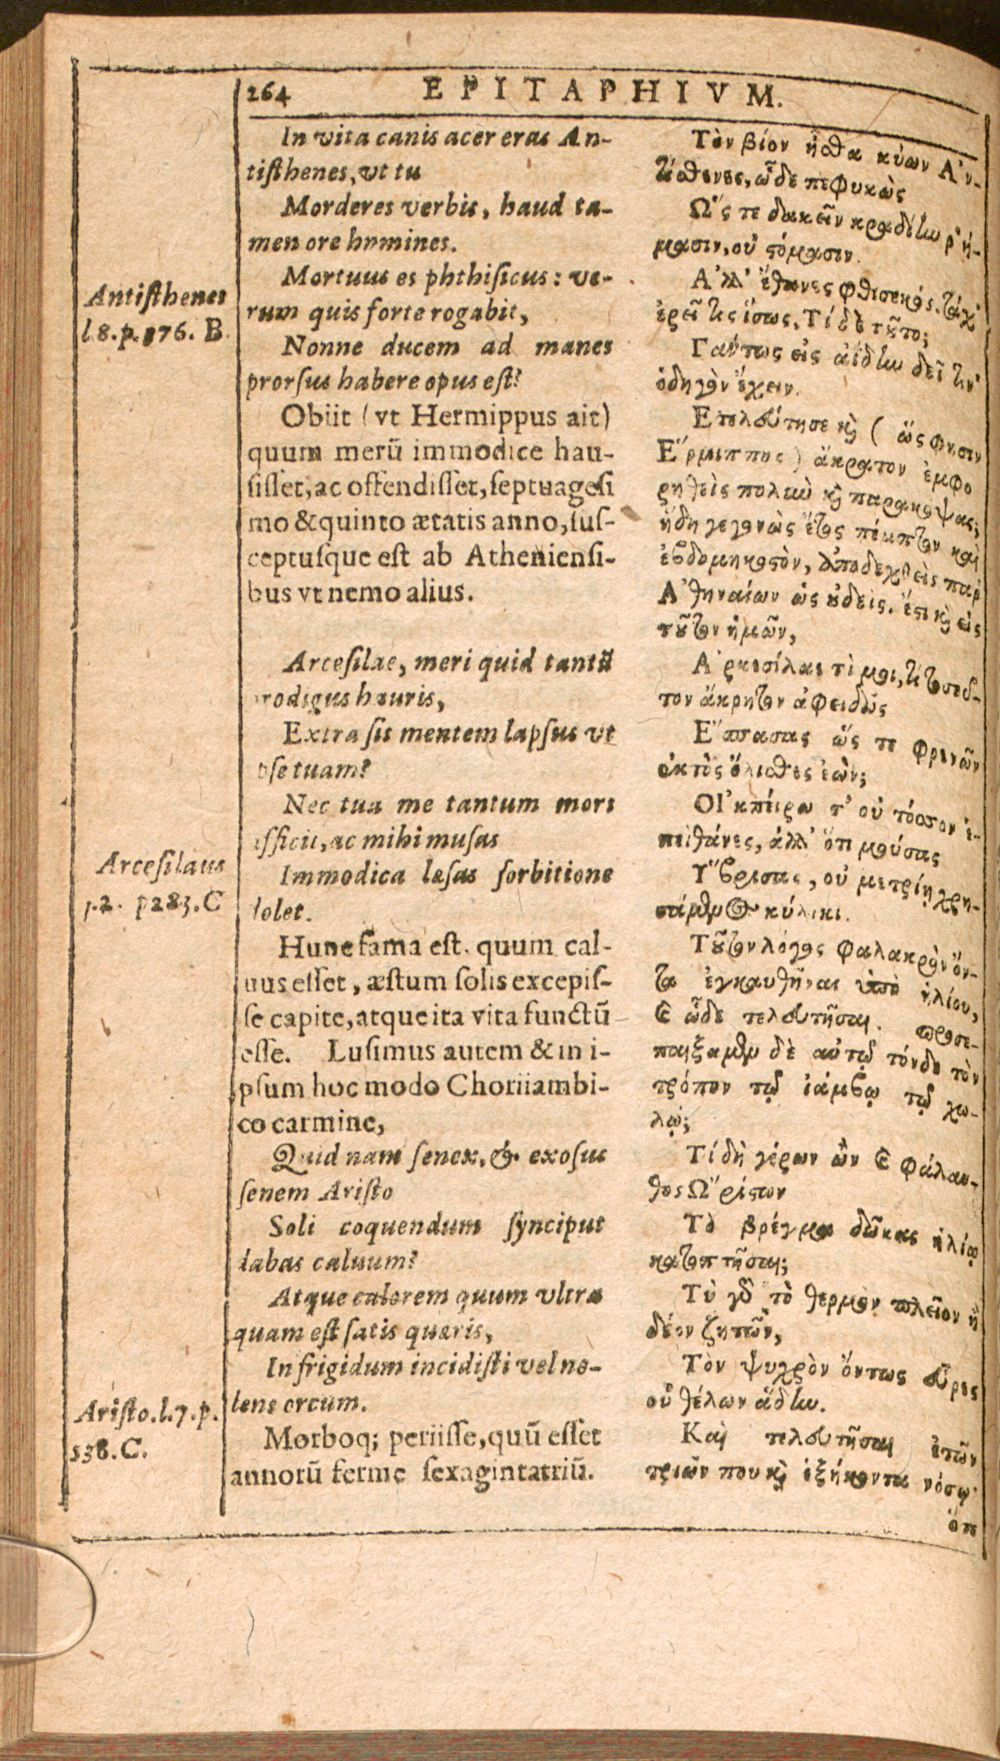 264 EPITAPHIVM.
In vita canis acer eras An-
tisthenes, vt tu
Morderes verbis, haud ta-
men ore homines.
Mortuus es phthisicus: ve-
rum quis forte rogabit,
Nonne ducem ad manes
prorsus habere opus est?
Obiit (vt Hermippus ait)
quum merũ immodice hau-
sisset, ac offendisset, septuagesi
mo & quinto ætatis anno, sus-
ceptusque est ab Atheniensi-
bus vt nemo alius.
Arcesilae, meri quid tantũ
prodigus hauris,
Extra sis mentem lapsus vt
ipse tuam?
Nec tua me tantum mors
afficit, ac mihi musas
Immodica læsas sorbitione
dolet.
Hunc fama est, quum cal-
uus esset, æstum solis excepis-
se capite, atque ita vita functũ
esse. Lusimus autem & in i-
psum hoc modo Choriiambi-
co carmine,
Quid nam senex, & exosus
senem Aristo
Soli coquendum synciput
dabas caluum?
Atque calorem quum vltra
quam est satis quæris,
In frigidum incidisti vel no-
lens orcum.
Morboq; periisse, quũ esset
annorũ ferme sexagintatriũ.
Antisthenes
l.8.p.876. B
Arcesilaus
p.283.C
Aristo.l.7.p.
538.C.
Τὸν βίον ἦσθα κύων Ἀν-
τίσθενες, ὧδε πεφυκὼς
Ὥς τε δακεῖν κραδίην ῥή-
μασιν, οὐ στόμασιν.
Ἀλλ' ἔθανες φθισικός. τάχ'
ἐρεῖ τις ἴσως, Τί δὲ τοῦτο;
Πάντως εἰς ἀΐδην δεῖ τιν'
ὁδηγὸν ἔχειν.
Ἐτελεύτησε καὶ (ὥς φησιν
Ἕρμιππος) ἄκρατον ἐμφο
ρηθεὶς πολὺν καὶ παρακοψας,
ἤδη γεγονὼς ἔτος πέμπτον καὶ
ἑβδομηκοστὸν, ἀποδεχθεὶς παρ'
Ἀθηναίων ὡς οὐδείς. ἔστι καὶ εἰς
τοῦτον ἡμῶν,
Ἀρκεσίλαε τί μοι, τί τοσοῦ-
τον ἄκρητον ἀφειδῶς
Ἔσπασας ὥς τε φρενῶν
ἐκτὸς ὄλισθες ἑῶν;
Οἰκτείρω σ' οὐ τόσσον ἐ-
πεὶ θάνες, ἀλλ' ὅτι μούσας
Ὕβρισας, οὐ μετρίῃ χρη-
σάμενος κύλικι.
Τοῦτον λόγος φαλακρὸν ὄν-
τα ἐγκαυθῆναι ὑπὸ ἡλίου,
καὶ ὧδε τελευτῆσαι. προσε-
παίξαμεν δὲ αὐτῷ τόνδε τὸν
τρόπον τῷ ἰάμβῳ τῷ χω-
λῷ;
Τί δὴ γέρων ὢν καὶ φάλαν-
θος Ὤρίστων
Τὸ βρέγμα δῶκας ἡλίῳ
κατοπτῆσαι;
Τὺ γὰρ τὸ θερμὸν πλεῖον ἢ
δέον ζητῶν,
Τὸν ψυχρὸν ὄντως εὗρες
οὐ θέλων ἅδην.
Καὶ τελευτῆσαι ἐτῶν
τριῶν που καὶ ἑξήκοντα νόσῳ·